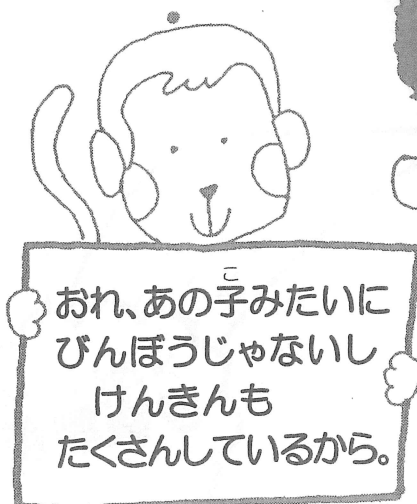 おれ、あの子みたいに
びんぼうじゃないし
けんきんも
たくさんしているから。